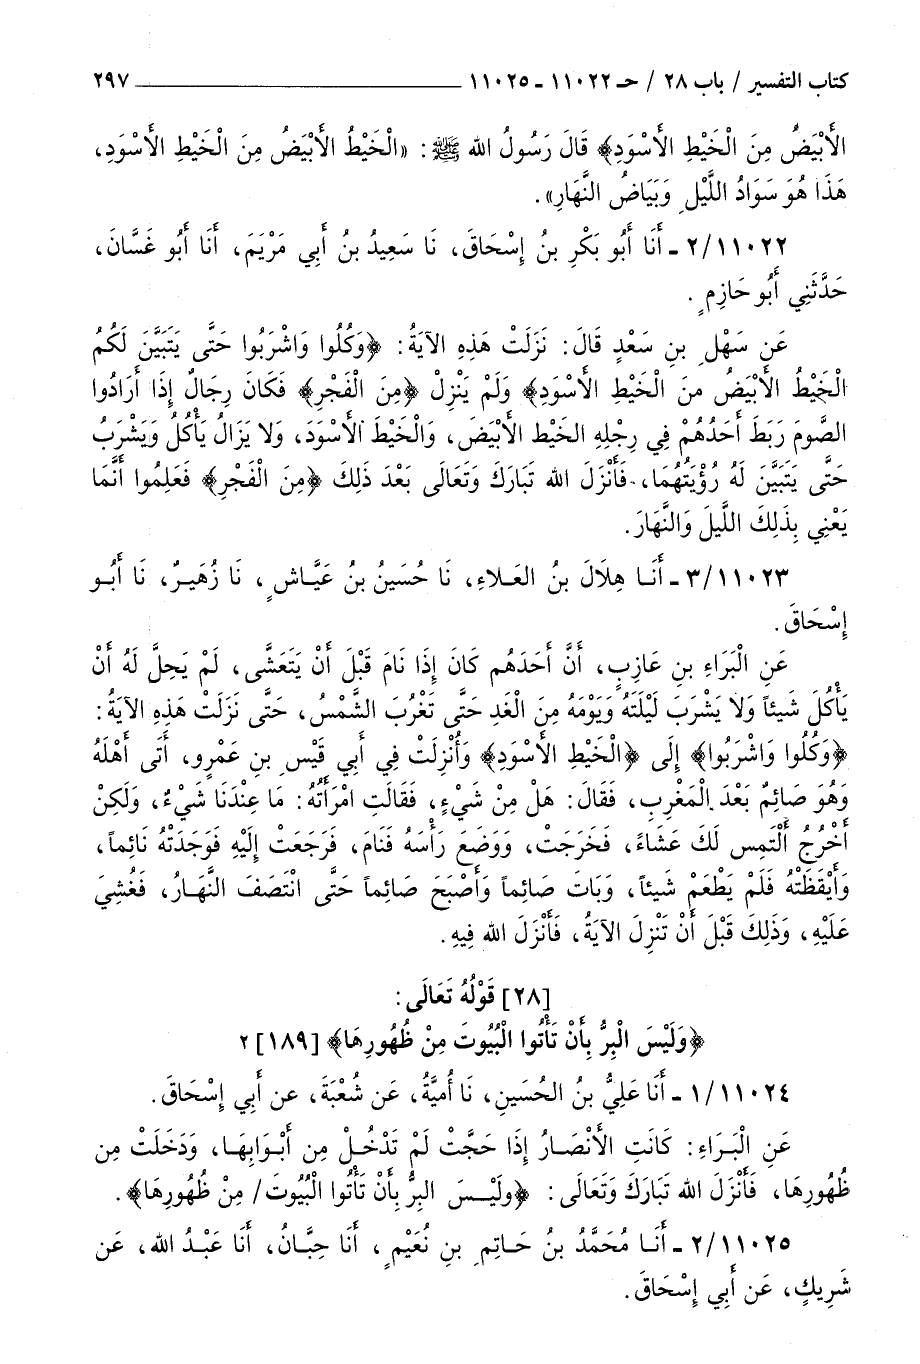 كتاب التفسير / باب ٢٨ / حـ ١١٠٢٢ ـ ١١٠٢٥ ٢٩٧
الأَبْيَضُ مِنَ الْخَيْطِ الأَسْوَدِ﴾ قَالَ رَسُولُ الله ﷺ: «الْخَيْطُ الأَبْيَضُ مِنَ الْخَيْطِ الأَسْوَدِ،
هَذَا هُوَ سَوَادُ اللَّيْلِ وَبَيَاضُ النَّهَارِ».
٢/١١٠٢٢ ـ أَنَا أَبُو بَكْرِ بنُ إِسْحَاقَ، نَا سَعِيدُ بنُ أَبِي مَرْيَمَ، أَنَا أَبُو غَسَّانَ،
حَدَّثَنِي أَبُو حَازِمٍ.
عَنِ سَهْلِ بنِ سَعْدٍ قَالَ: نَزَلَتْ هَذِهِ الآيَةُ: ﴿وَكُلُوا وَاشْرَبُوا حَتَّى يَتَبَيَّنَ لَكُمُ
الْخَيْطُ الأَبْيَضُ مِنَ الْخَيْطِ الأَسْوَدِ﴾ وَلَمْ يَنْزِلْ ﴿مِنَ الْفَجْرِ﴾ فَكَانَ رِجَالٌ إِذَا أَرَادُوا
الصَّومَ رَبَطَ أَحَدُهُمْ فِي رِجْلِهِ الخَيْطَ الأَبْيَضَ، وَالْخَيْطَ الأَسْوَدَ، وَلا يَزَالُ يَأْكُلُ وَيَشْرَبُ
حَتَّى يَتَبَيَّنَ لَهُ رُؤْيَتُهُمَا، فَأَنْزَلَ الله تَبَارَكَ وَتَعَالَى بَعْدَ ذَلِكَ ﴿مِنَ الْفَجْرِ﴾ فَعَلِمُوا أَنَّمَا
يَعْنِي بِذَلِكَ اللَّيلَ وَالنَّهَارَ.
٣/١١٠٢٣ ـ أَنَا هِلَالَ بنُ العَلاءِ، نَا حُسَيْنُ بنُ عَيَّاشٍ، نَا زُهَيرٌ، نَا أَبُو
إِسْحَاقَ.
عَنِ الْبَرَاءِ بنِ عَازِبٍ، أَنَّ أَحَدَهُم كَانَ إِذَا نَامَ قَبْلَ أَنْ يَتَعَشَّى، لَمْ يَحِلَّ لَهُ أَنْ
يَأْكُلَ شَيئاً وَلا يَشْرَبَ لَيْلَتَهُ وَيَوْمَهُ مِنَ الْغَدِ حَتَّى تَغْرُبَ الشَّمْسُ، حَتَّى نَزَلَتْ هَذِهِ الآيَةُ:
﴿وَكُلُوا وَاشْرَبُوا﴾ إِلَى ﴿الْخَيْطِ الأَسْوَدِ﴾ وَأُنْزِلَتْ فِي أَبِي قَيْسِ بنِ عَمْرٍو، أَتَى أَهْلَهُ
وَهُوَ صَائِمٌ بَعْدَ الْمَغْرِبِ، فَقَالَ: هَلْ مِنْ شَيْءٍ، فَقَالَتِ امْرَأَتُهُ: مَا عِنْدَنَا شَيْءٌ، وَلَكِنْ
أَخْرُجُ أَلْتَمِس لَكَ عَشَاءً، فَخَرَجَتْ، وَوَضَعَ رَأْسَهُ فَنَامَ، فَرَجَعَتْ إِلَيْهِ فَوَجَدَتْهُ نَائِماً،
وَأَيْقَظَتْهُ فَلَمْ يَطْعَمْ شَيئاً، وَبَاتَ صَائِماً وَأَصْبَحَ صَائِماً حَتَّى انْتَصَفَ النَّهَارُ، فَغُشِيَ
عَلَيْهِ، وَذَلِكَ قَبْلَ أَنْ تَنْزِلَ الآيَةُ، فَأَنْزَلَ الله فِيهِ.
[٢٨] قَوْلُهُ تَعَالَى:
﴿وَلَيْسَ الْبِرُّ بِأَنْ تَأْتُوا الْبُيُوتَ مِنْ ظُهُورِهَا﴾ [١٨٩] ٢
١/١١٠٢٤ ـ أَنَا عَلِيُّ بنُ الحُسَينِ، نَا أُمَيَّةُ، عَن شُعْبَةَ، عن أَبِي إِسْحَاقَ.
عَنِ الْبَرَاءِ: كَانَتِ الأَنْصَارُ إِذَا حَجَّتْ لَمْ تَدْخُلْ مِن أَبْوَابِهَا، وَدَخَلَتْ مِن
ظُهُورِهَا، فَأَنْزَلَ الله تَبَارَكَ وَتَعَالَى: ﴿وليْسَ البِرُّ بِأَنْ تَأْتُوا الْبُيُوتَ/ مِنْ ظُهُورِهَا﴾.
٢/١١٠٢٥ ـ أَنَا مُحَمَّدُ بنُ حَاتِمِ بنِ نُعَيْمٍ، أَنَا حِبَّانُ، أَنَا عَبْدُ الله، عَن
شَرِيكٍ، عَن أَبِي إِسْحَاقَ.